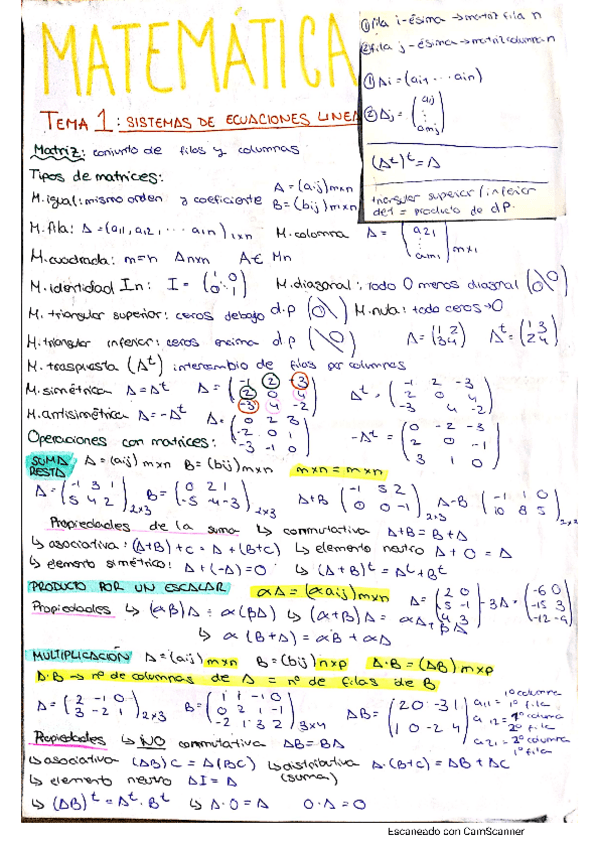 MATEMÁTICA
① fila i-ésima → matriz fila n
② fila j-ésima → matriz columna n
① Ai = (ai1 ... ain)
② Aj = (a1j ⋮ amj)
(A^t)^t = A
triangular superior / inferior
det = producto de dP.
TEMA 1: SISTEMAS DE ECUACIONES LINEA
Matriz: conjunto de filas y columnas
Tipos de matrices:
M. igual: mismo orden y coeficiente A = (aij) mxn B = (bij) mxn
M. fila: A = (a11, a12, ... a1n) 1xn M. columna A = (a21 ⋮ am1) mx1
M. cuadrada: m=n Anxn A∈ Mn
M. identidad In: I = (1 0 0 1) M. diagonal: todo 0 menos diagonal (0\0)
M. triangular superior: ceros debajo d.p (0\) M. nula: todo ceros → 0
M. triangular inferior: ceros encima d.p (\0) A = (1 2 3 4) A^t = (1 3 2 4)
M. traspuesta (A^t) intercambio de filas por columnas
M. simétrica A = A^t A = (-1 2 -3 2 0 4 -3 4 -2) A^t = (-1 2 -3 2 0 4 -3 4 -2)
M. antisimétrica A = -A^t A = (0 2 3 -2 0 1 -3 -1 0) -A^t = (0 -2 -3 2 0 -1 3 1 0)
Operaciones con matrices:
SUMA RESTA A = (aij) mxn B = (bij) mxn mxn = mxn
A = (-1 3 1 5 4 2) 2x3 B = (0 2 1 -5 -4 -3) 2x3 A+B (-1 5 2 0 0 -1) 2x3 A-B (-1 1 0 10 8 5)
Propiedades de la suma ↳ conmutativa A+B = B+A
↳ asociativa: (A+B)+C = A+(B+C) ↳ elemento neutro A+0 = A
↳ elemento simétrico: A+(-A)=0 ↳ (A+B)^t = A^t+B^t
PRODUCTO POR UN ESCALAR αA = (αaij) mxn A = (2 0 5 -1 4 3) -3A = (-6 0 -15 3 -12 -9)
Propiedades ↳ (αβ)A = α(βA) ↳ (α+β)A = αA + βA
↳ α(B+A) = αB + αA
MULTIPLICACIÓN A = (aij) mxn B = (bij) nxp A·B = (AB) mxp
A·B → nº de columnas de A = nº de filas de B
A = (2 -1 0 3 -2 1) 2x3 B = (1 1 -1 0 0 2 1 -1 -2 1 3 2) 3x4 AB = (2 0 -3 1 1 0 -2 4) a11 = 1º columna 1º fila
a12 = 1º columna 2º fila
a21 = 2º columna 1º fila
Propiedades ↳ NO conmutativa AB = BA
↳ asociativa (AB)C = A(BC) ↳ distributiva A·(B+C) = AB + AC
↳ elemento neutro AI = A (suma)
↳ (AB)^t = A^t · B^t ↳ A·0 = A 0·A = 0
Escaneado con CamScanner